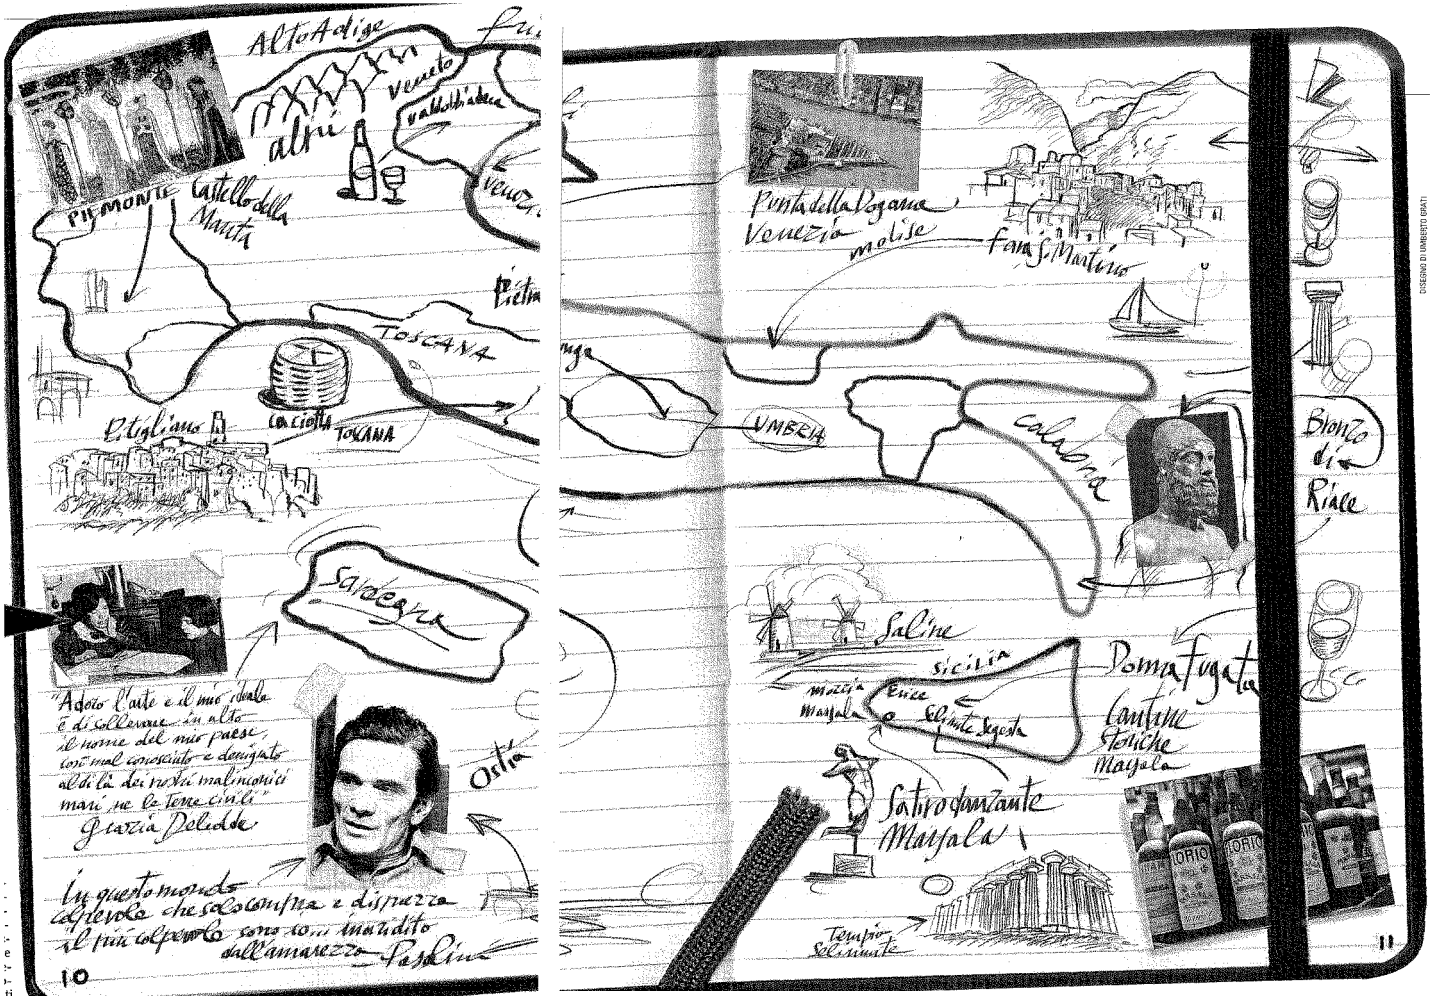 Alto Adige
Veneto
Valdobbiadene
alpi
PIEMONTE
Castello della
Manta
TOSCANA
caciotta
TOSCANA
Pitigliano
Sardegna
"Adoro l'arte e il mio ideale
è di sollevare in alto
il nome del mio paese,
così mal conosciuto e denigrato
al di là dei nostri malinconici
mari ne le terre civili"
Grazia Deledda
Ostia
In questo mondo
colpevole che solo compra e disprezza
il più colpevole sono io inaridito
dall'amarezza Pasolini
10
Punta della Dogana
Venezia
molise
Fara S. Martino
UMBRIA
calabria
Bronzo
di
Riace
Saline
SICILIA
Mozzia
Marsala
Erice
Selinute Segesta
Donnafugata
Cantine
Storiche
Marsala
Satiro danzante
Marsala
Tempio
Selinunte
ORIO
IORIO
11
DISEGNO DI UMBERTO GRATI